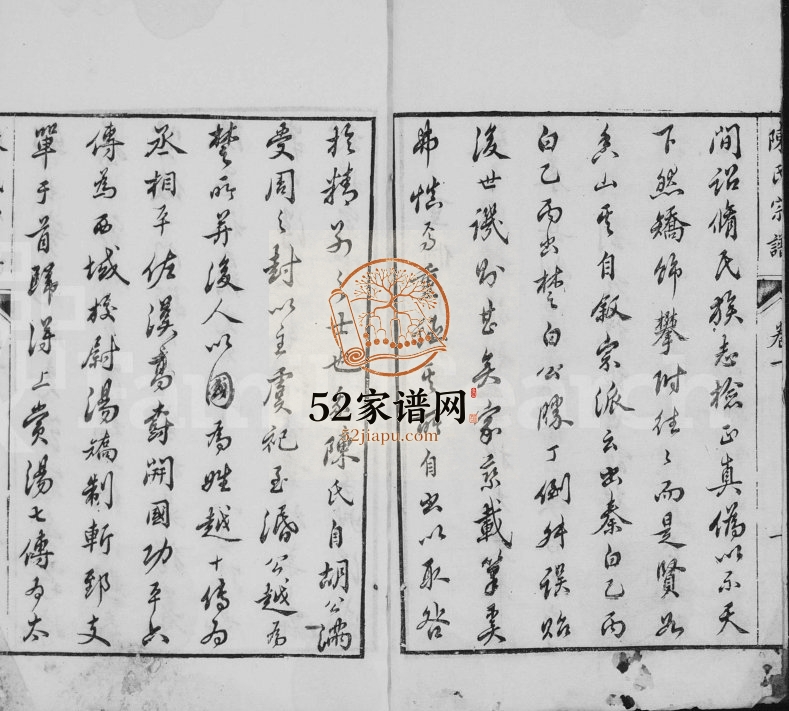 陳氏宗譜 卷一 一
間詔脩氏族志檢正真偽以示天
下然矯飾攀附往〻而是賢如
香山其自叙宗派云出秦白乙丙
白乙丙出楚白公勝丁倒舛誤貽
後世譏則甚矣家乘載筆奚
弗慎自出以取咎
於精世也陳氏自胡公滿
受周之封以主虞祀至湣公越為
楚所并後人以國為姓越十傳為
丞相平佐漢高封開國功平六
傳為西域校尉湯矯制斬郅支
單于首歸得上賞湯七傳為太
52家谱网
52jiapu.com
FamilySearch